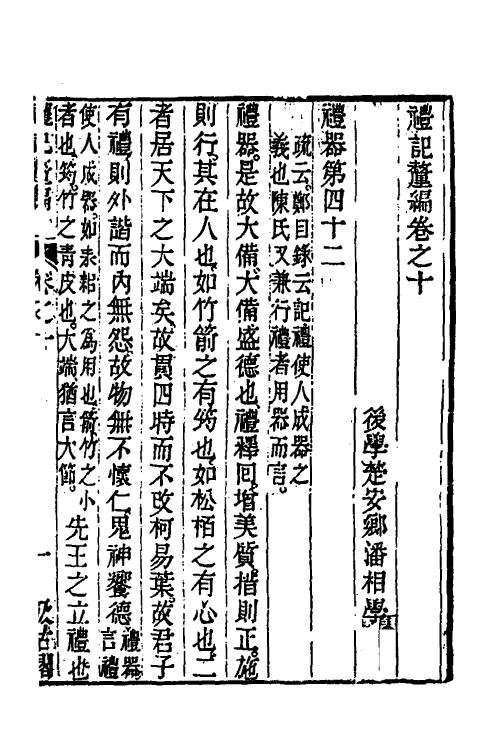 禮記釐編卷之十
後學楚安鄉潘相學
禮器第四十二
疏云鄭目錄云記禮使人成器之
義也陳氏又兼行禮者用器而言。
禮器。是故大備。大備盛德也。禮釋回。增美質。措則正。施
則行。其在人也。如竹箭之有筠也。如松栢之有心也。二
者居天下之大端矣。故貫四時而不改柯易葉。故君子
有禮。則外諧而內無怨。故物無不懷仁。鬼神饗德。禮器言禮
使人成器。如耒耜之爲用也。箭竹之小
者也。筠竹之青皮也。大端猶言大節。
先王之立禮也
禮記釐編
卷之十
一
汲古閣